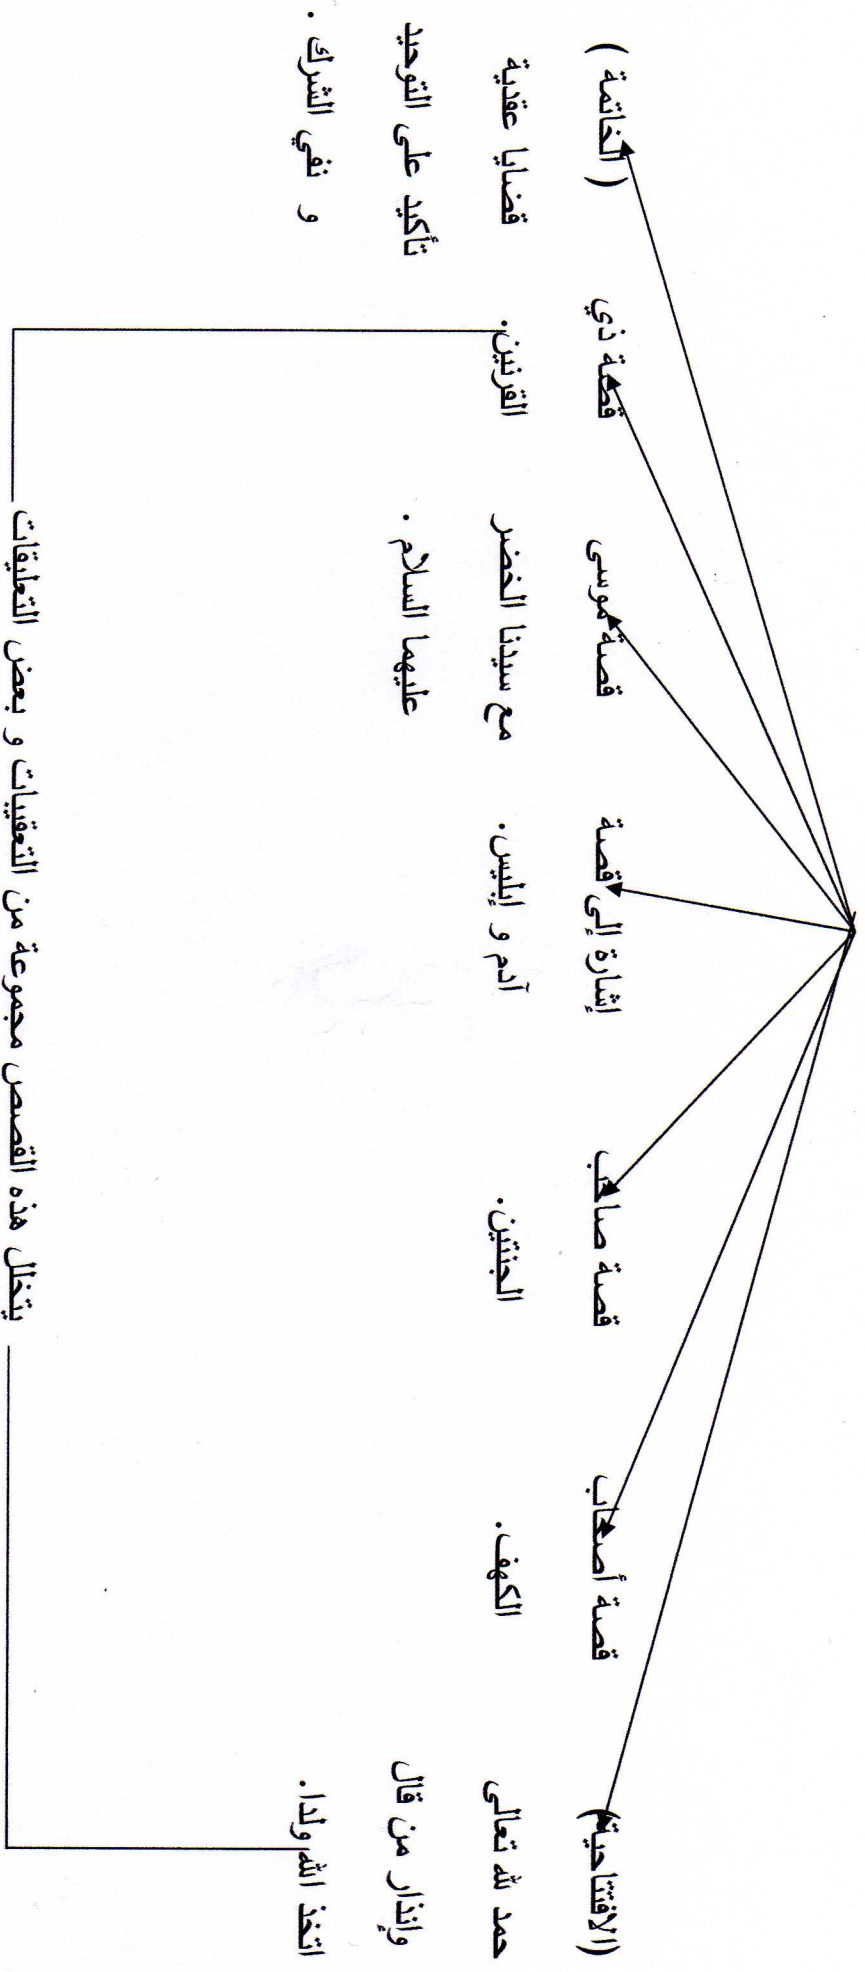 (الافتتاحية)
حمد لله تعالى
وإنذار من قال
اتخذ الله ولدا.
قصة أصحاب
الكهف.
قصة صاحب
الجنتين.
إشارة إلى قصة
آدم و إبليس.
قصة موسى
مع سيدنا الخضر
عليهما السلام .
قصة ذي
القرنين.
( الخاتمة )
قضايا عقدية
تأكيد على التوحيد
و نفي الشرك .
يتخلل هذه القصص مجموعة من التعقيبات و بعض التعليقات